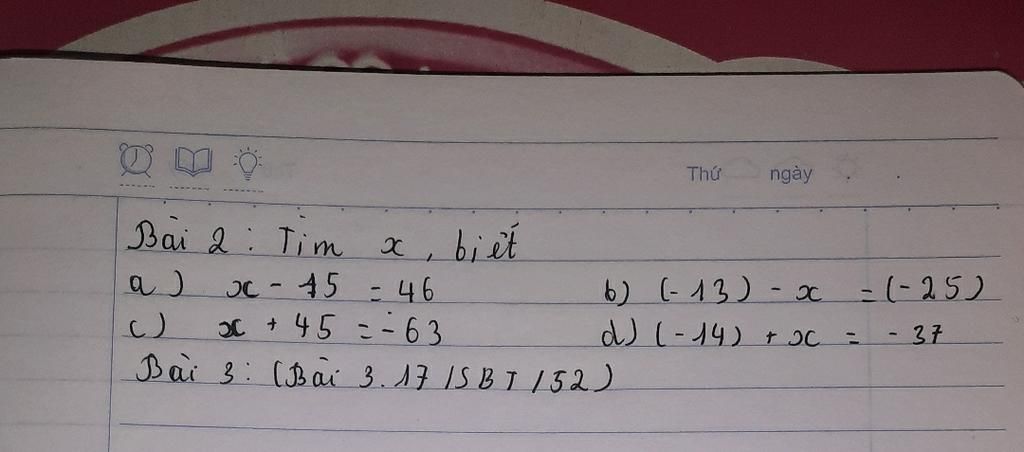 Thứ ngày
Bài 2 : Tìm x, biết
a) x - 15 = 46 b) (-13) - x = (-25)
c) x + 45 = -63 d) (-14) + x = -37
Bài 3 : (Bài 3.17/SBT/52)